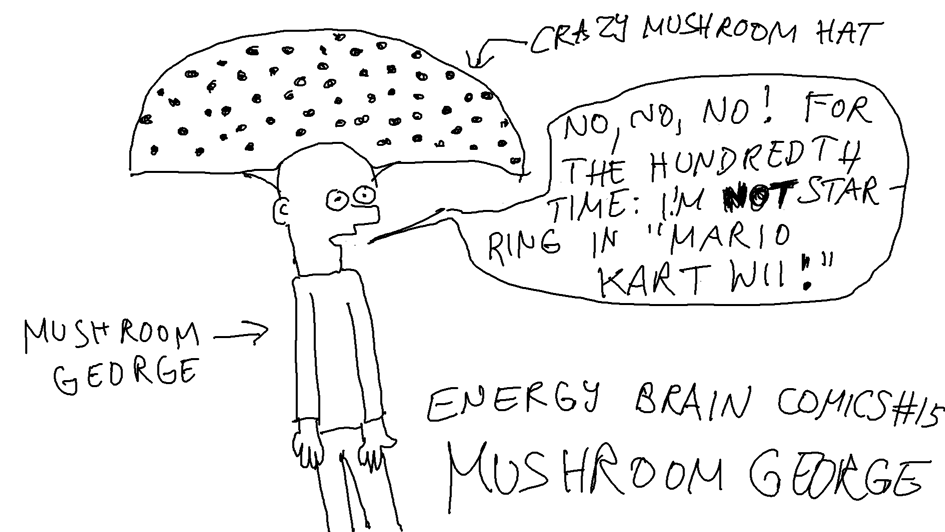 CRAZY MUSHROOM HAT
NO, NO, NO! FOR
THE HUNDREDTH
TIME: I'M NOT STAR-
RING IN "MARIO
KART WII!"
MUSHROOM
GEORGE
ENERGY BRAIN COMICS #15
MUSHROOM GEORGE